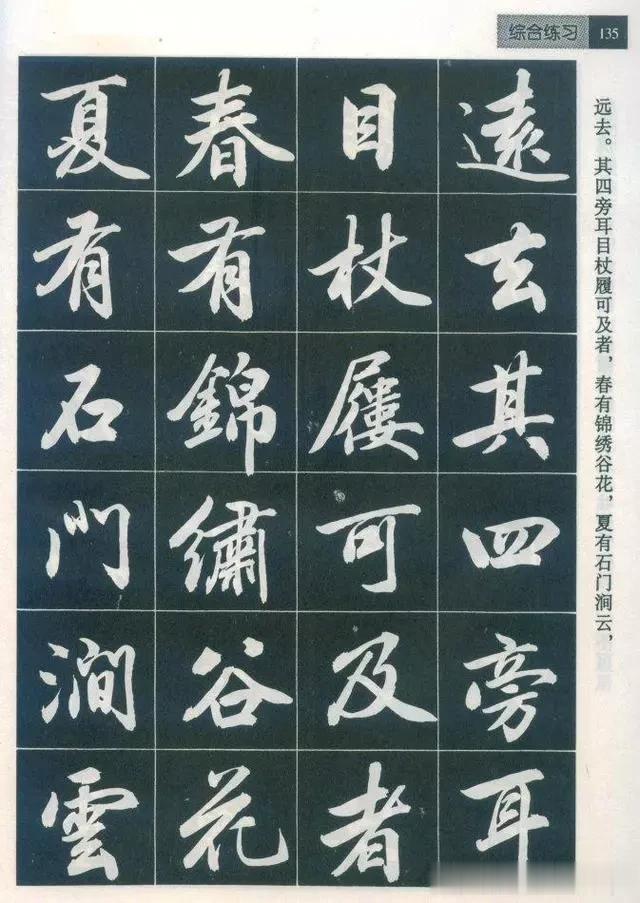 综合练习 135
远去。其四旁耳目杖履可及者，春有锦绣谷花，夏有石门涧云，
遠去其四旁耳
目杖屨可及者
春有錦繡谷花
夏有石門澗雲